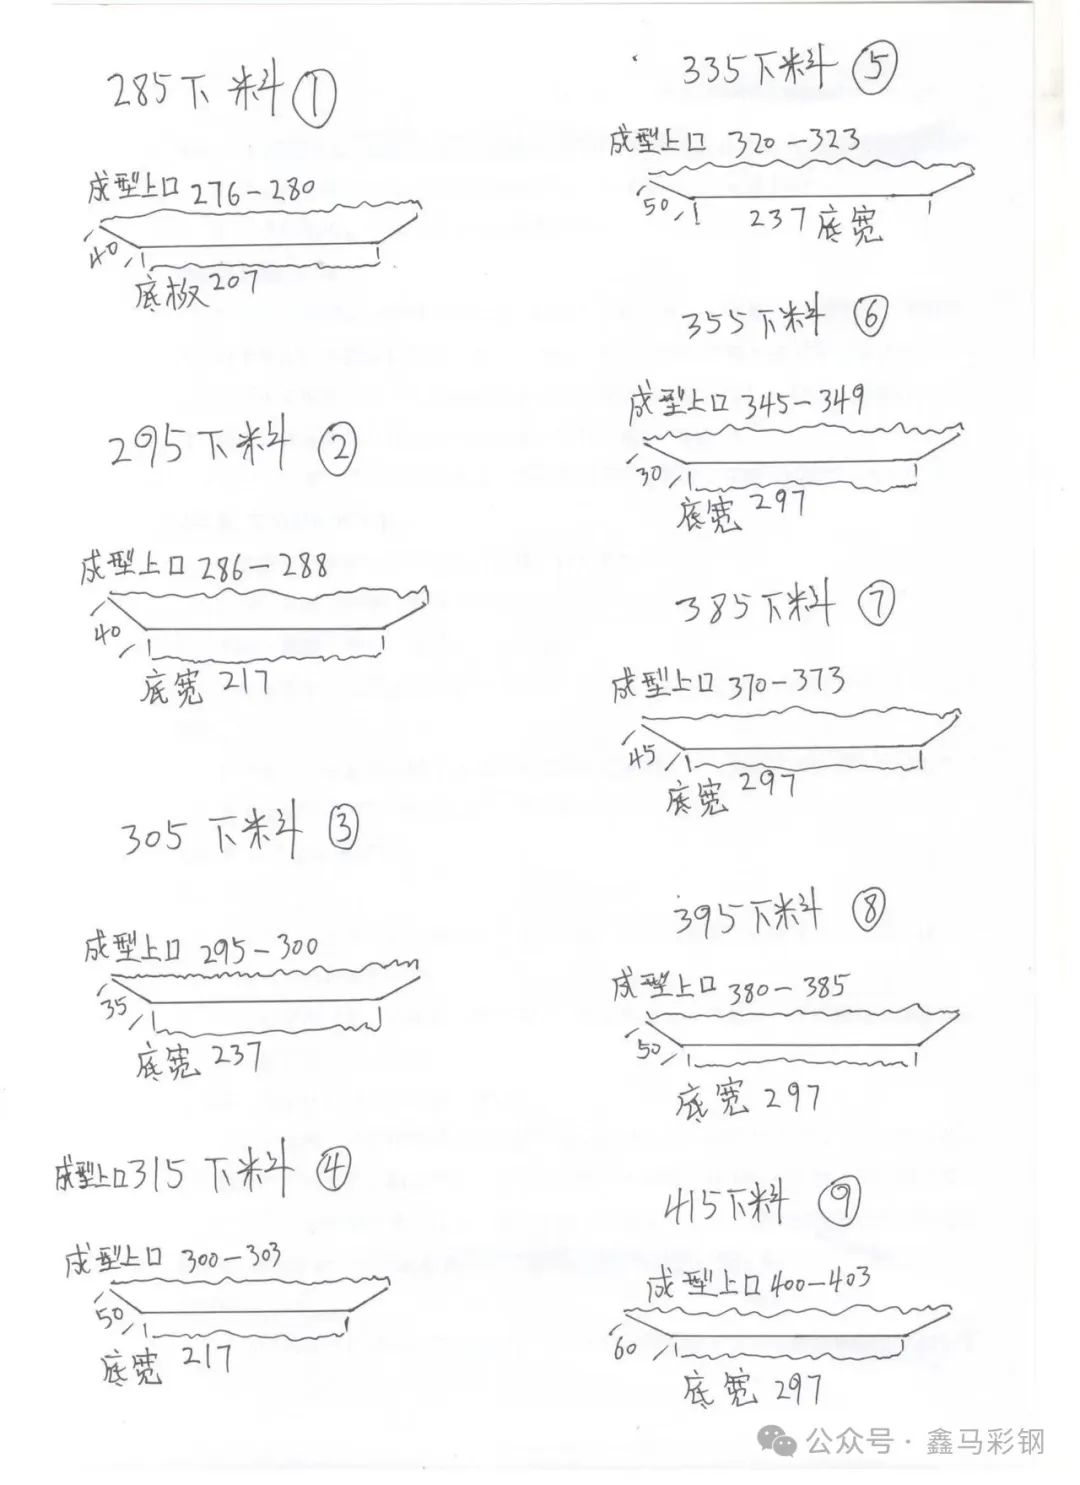 285下料 ①
成型上口 276-280
40
底板207
295下料 ②
成型上口 286-288
40
底宽 217
305 下料 ③
成型上口 295-300
35
底宽 237
成型上口315 下料 ④
成型上口 300-303
50
底宽 217
335下料 ⑤
成型上口 320-323
50
237 底宽
355下料 ⑥
成型上口345-349
30
底宽 297
385下料 ⑦
成型上口370-373
45
底宽 297
395下料 ⑧
成型上口380-385
50
底宽 297
415下料 ⑨
成型上口400-403
60
底宽 297
公众号·鑫马彩钢